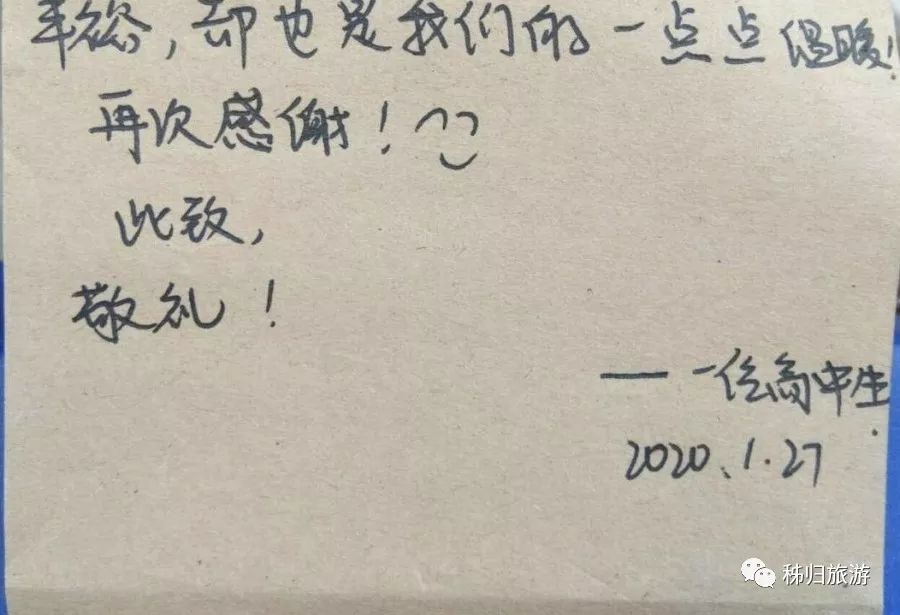 ，却也是我们的一点点温暖！
再次感谢！
此致，
敬礼！
——一位高中生
2020.1.27
秭归旅游